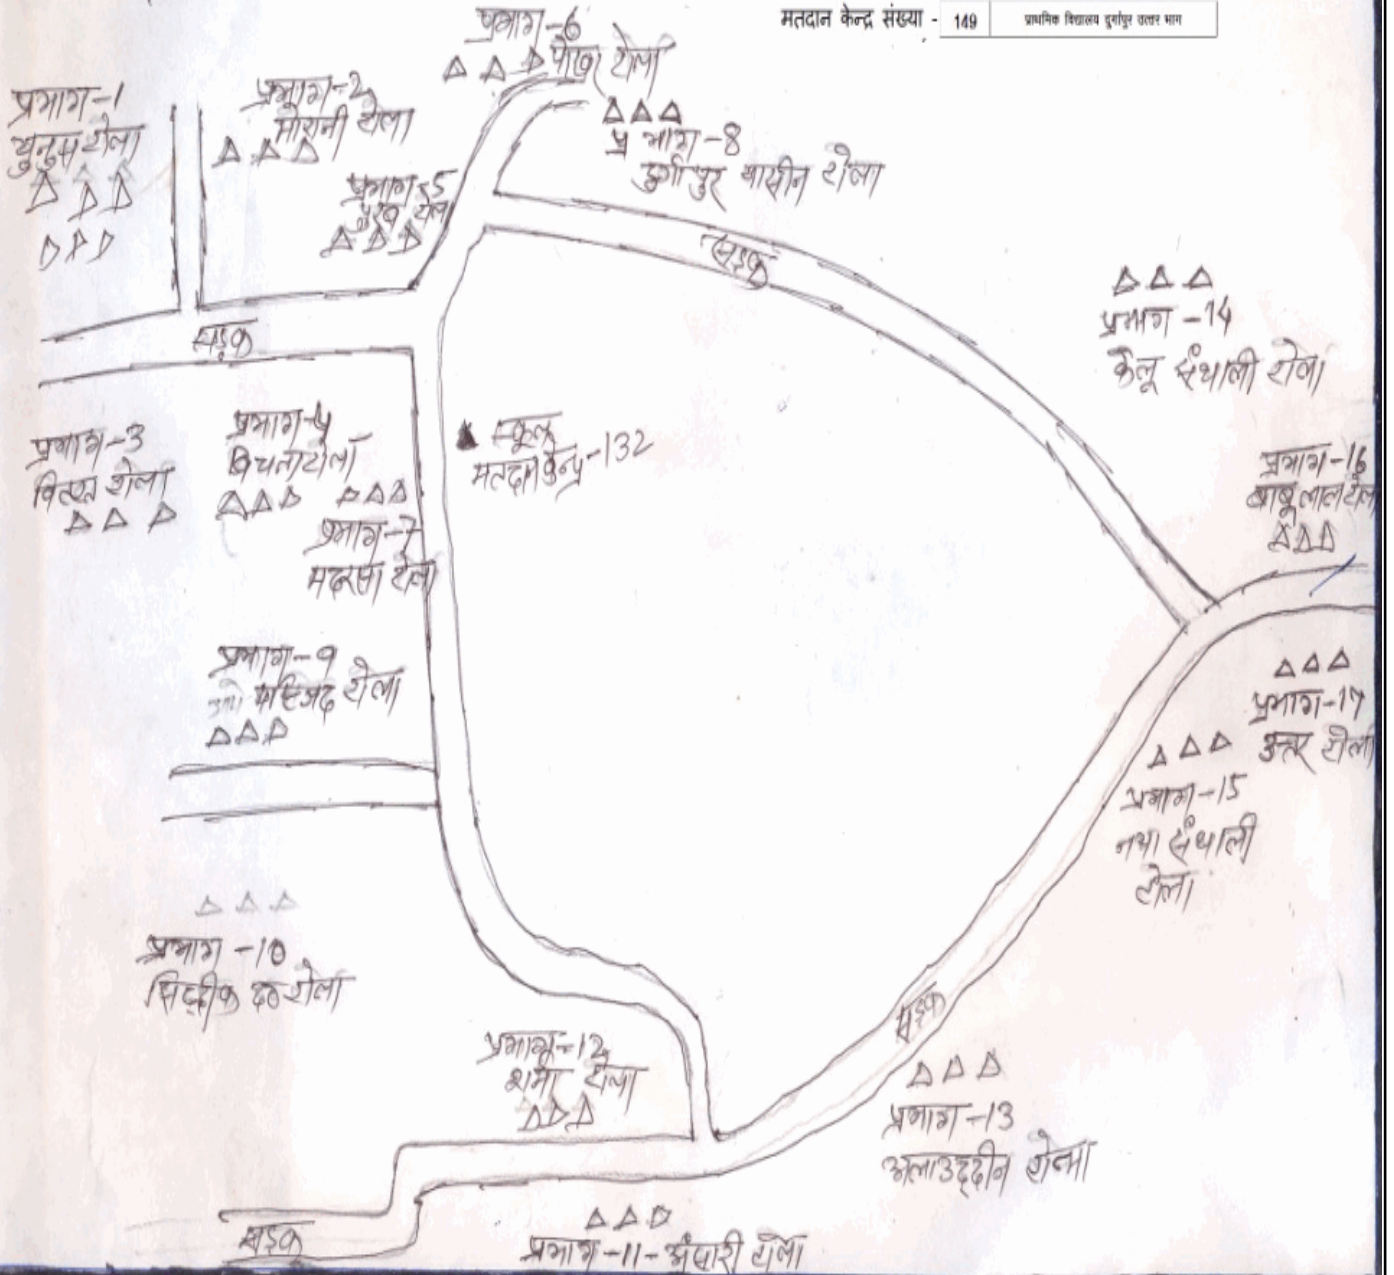 मतदान केन्द्र संख्या - 149 प्राथमिक विद्यालय दुर्गापुर उत्तर भाग
प्रभाग-6
पोखर टोला
प्रभाग-1
युनुस टोला
प्रभाग-2
टोला
प्रभाग-5
टोला
प्रभाग-8
दुर्गापुर यासीन टोला
सड़क
सड़क
प्रभाग-14
केलू संथाली टोला
प्रभाग-3
टोला
प्रभाग-4
स्कूल
मतदान केन्द्र-132
प्रभाग-16
बाबूलाल टोला
प्रभाग-7
मदरसा टोला
प्रभाग-9
मस्जिद टोला
प्रभाग-17
उत्तर टोला
प्रभाग-15
नया संथाली
टोला
प्रभाग-10
सिद्दीक टोला
सड़क
प्रभाग-12
शर्मा टोला
प्रभाग-13
अलाउद्दीन टोला
सड़क
प्रभाग-11-अंसारी टोला